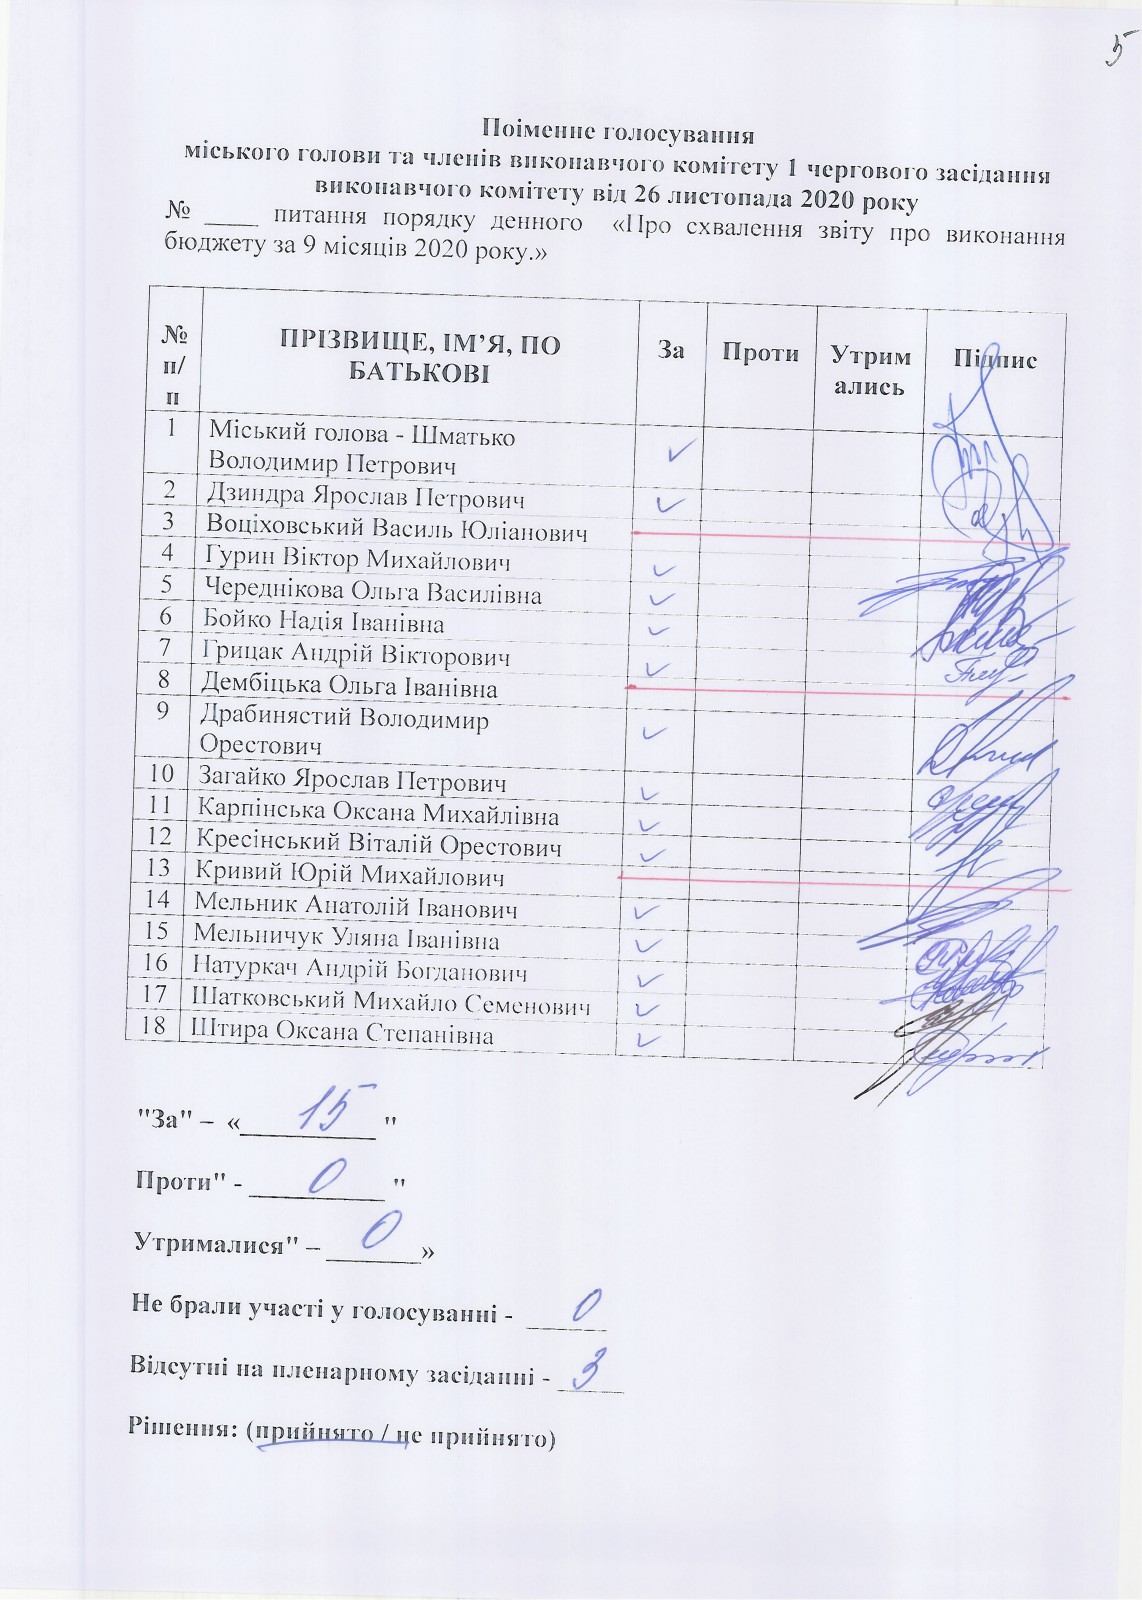 5
Поіменне голосування
міського голови та членів виконавчого комітету 1 чергового засідання
виконавчого комітету від 26 листопада 2020 року
№ ____ питання порядку денного «Про схвалення звіту про виконання
бюджету за 9 місяців 2020 року.»
№ п/п ПРІЗВИЩЕ, ІМ’Я, ПО БАТЬКОВІ За Проти Утрим ались Підпис
1 Міський голова - Шматько
Володимир Петрович ✓
2 Дзиндра Ярослав Петрович ✓
3 Воціховський Василь Юліанович
4 Гурин Віктор Михайлович ✓
5 Череднікова Ольга Василівна ✓
6 Бойко Надія Іванівна ✓
7 Грицак Андрій Вікторович ✓
8 Дембіцька Ольга Іванівна
9 Драбинястий Володимир
Орестович ✓
10 Загайко Ярослав Петрович ✓
11 Карпінська Оксана Михайлівна ✓
12 Кресінський Віталій Орестович ✓
13 Кривий Юрій Михайлович
14 Мельник Анатолій Іванович ✓
15 Мельничук Уляна Іванівна ✓
16 Натуркач Андрій Богданович ✓
17 Шатковський Михайло Семенович ✓
18 Штира Оксана Степанівна ✓
"За" – «15"
Проти" - 0"
Утрималися" – 0»
Не брали участі у голосуванні - 0
Відсутні на пленарному засіданні - 3
Рішення: (прийнято / не прийнято)